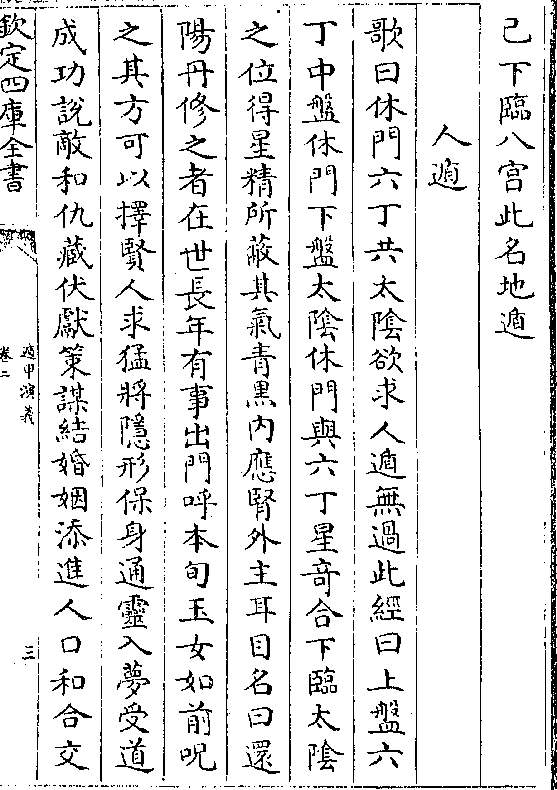 己下臨八宮此名地遁
人遁
歌曰休門六丁共太陰欲求人遁無過此經曰上盤六
丁中盤休門下盤太陰休門與六丁星竒合下臨太陰
之位得星精所蔽其氣青黑内應腎外主耳目名曰還
陽丹修之者在世長年有事出門呼本旬玉女如前呪
之其方可以擇賢人求猛將隱形保身通靈入夢受道
成功説敵和仇藏伏獻策謀結婚姻添進人口和合交
欽定四庫全書
遁甲演義
卷二
三